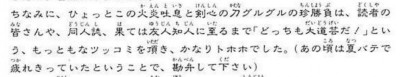 ちなみに、ひょっとこの火炎吐息と剣心の刀グルグルの珍勝負は、読者の
皆さんや、同人誌、果ては友人知人に至るまで「どっちも大道芸だ!」とい
う、もっともなツッコミを頂き、かなりトホホでした。(あの頃は夏バテで
疲れきっていたということで、勘弁して下さい)